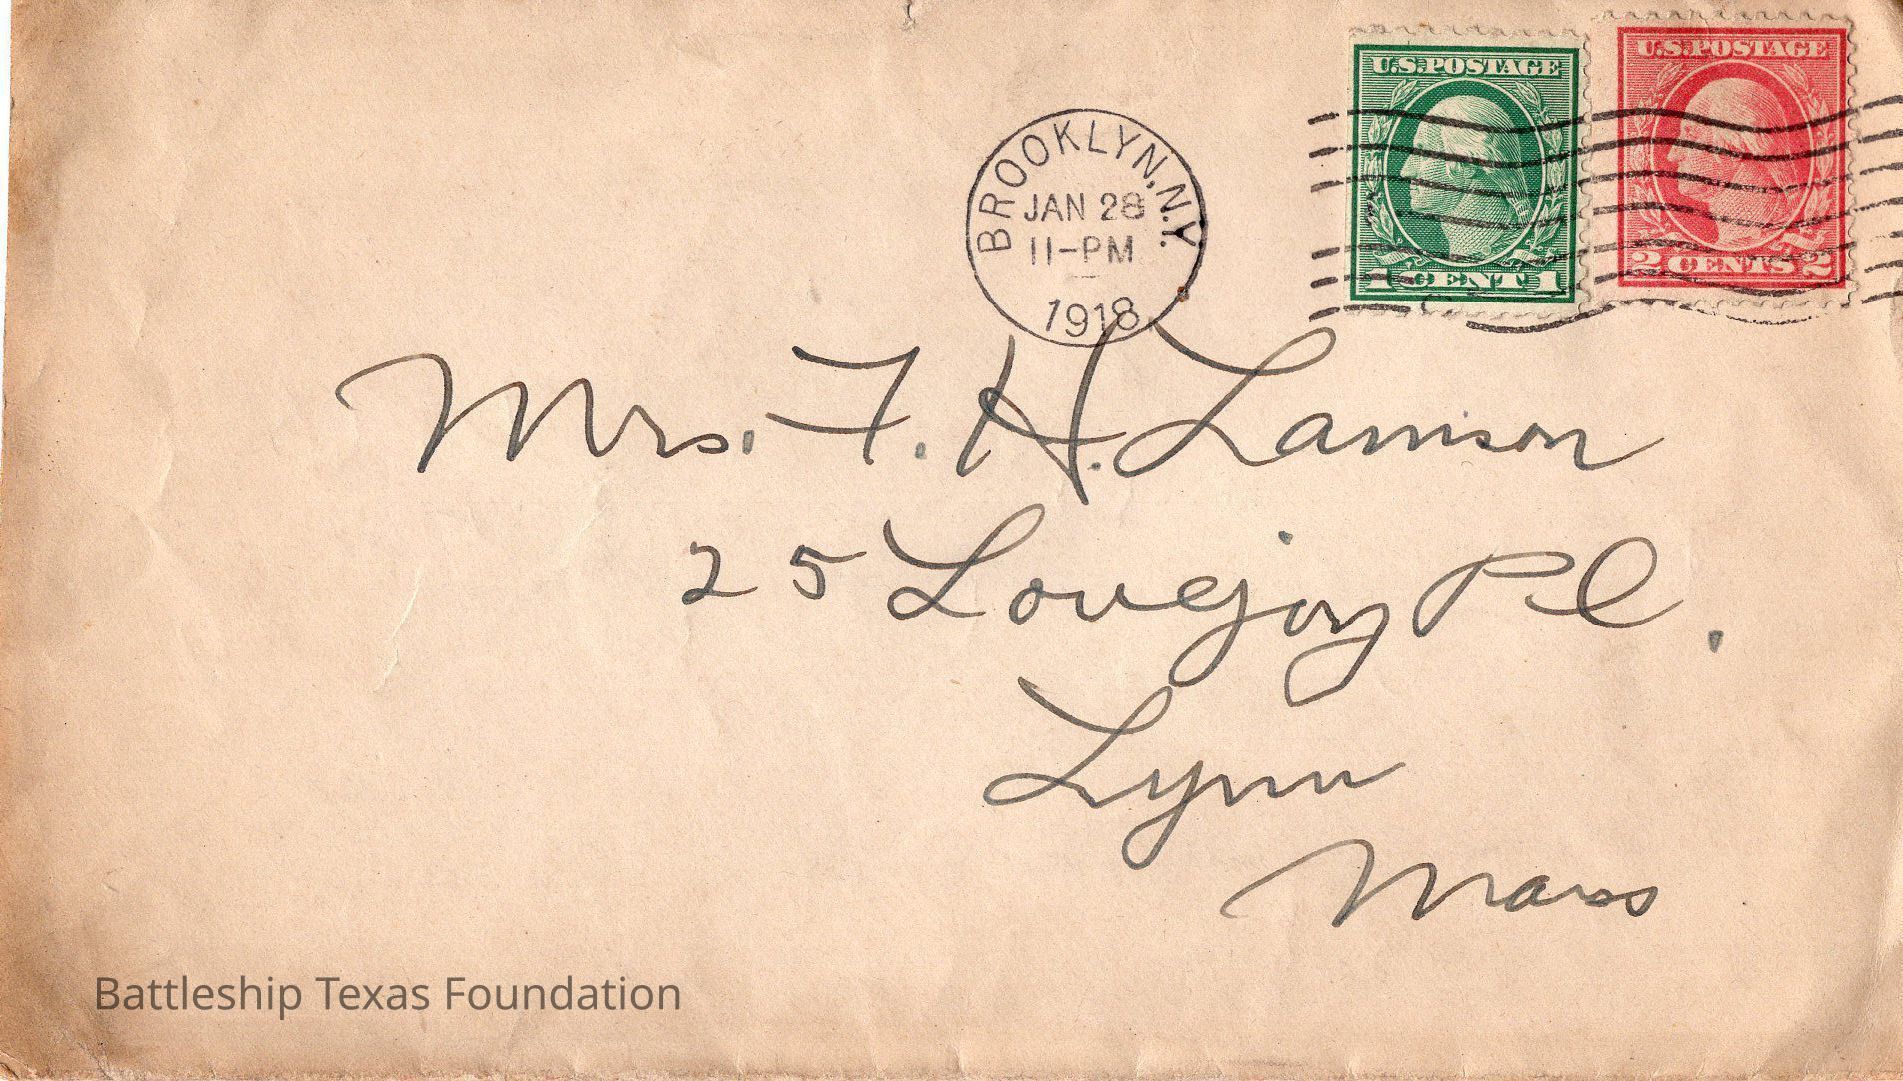 U.S.POSTAGE
1 CENT 1
U.S.POSTAGE
2 CENTS 2
BROOKLYN, N.Y.
JAN 28
11-PM
1918
Mrs. F. H. Lamson
25 Lovejoy Pl.
Lynn
Mass
Battleship Texas Foundation